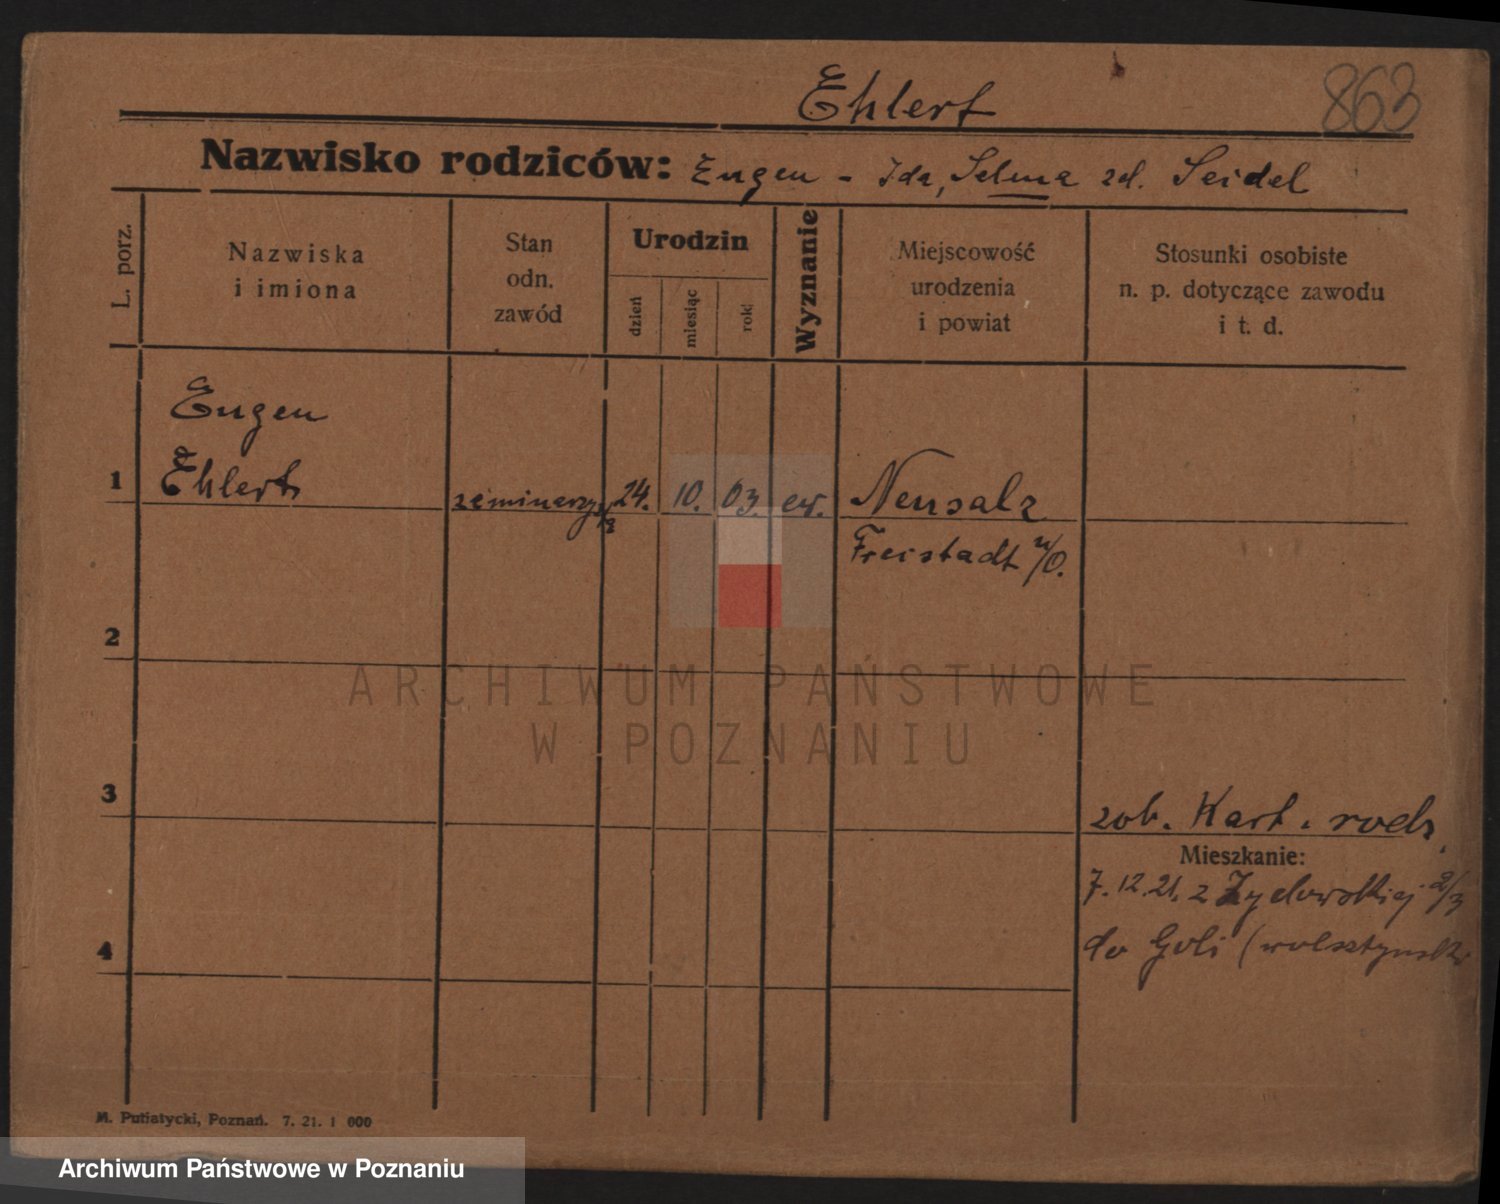 Ehlert
863
Nazwisko rodziców: Eugen - Ida, Selma zd. Seidel
L. porz.
Nazwiska
i imiona
Stan
odn.
zawód
Urodzin
dzień
miesiąc
rok
Wyznanie
Miejscowość
urodzenia
i powiat
Stosunki osobiste
n. p. dotyczące zawodu
i t. d.
Eugen
1 Ehlert seminarzysta 24. 10. 03. ew. Neusalz
Freistadt n/O.
2
ARCHIWUM PAŃSTWOWE
W POZNANIU
3
zob. Kart. rodz.
Mieszkanie:
7.12.21. z Żydowskiej 2/3
4
do Goli (wolsztyńsk
M. Putiatycki, Poznań. 7. 21. 1 000
Archiwum Państwowe w Poznaniu